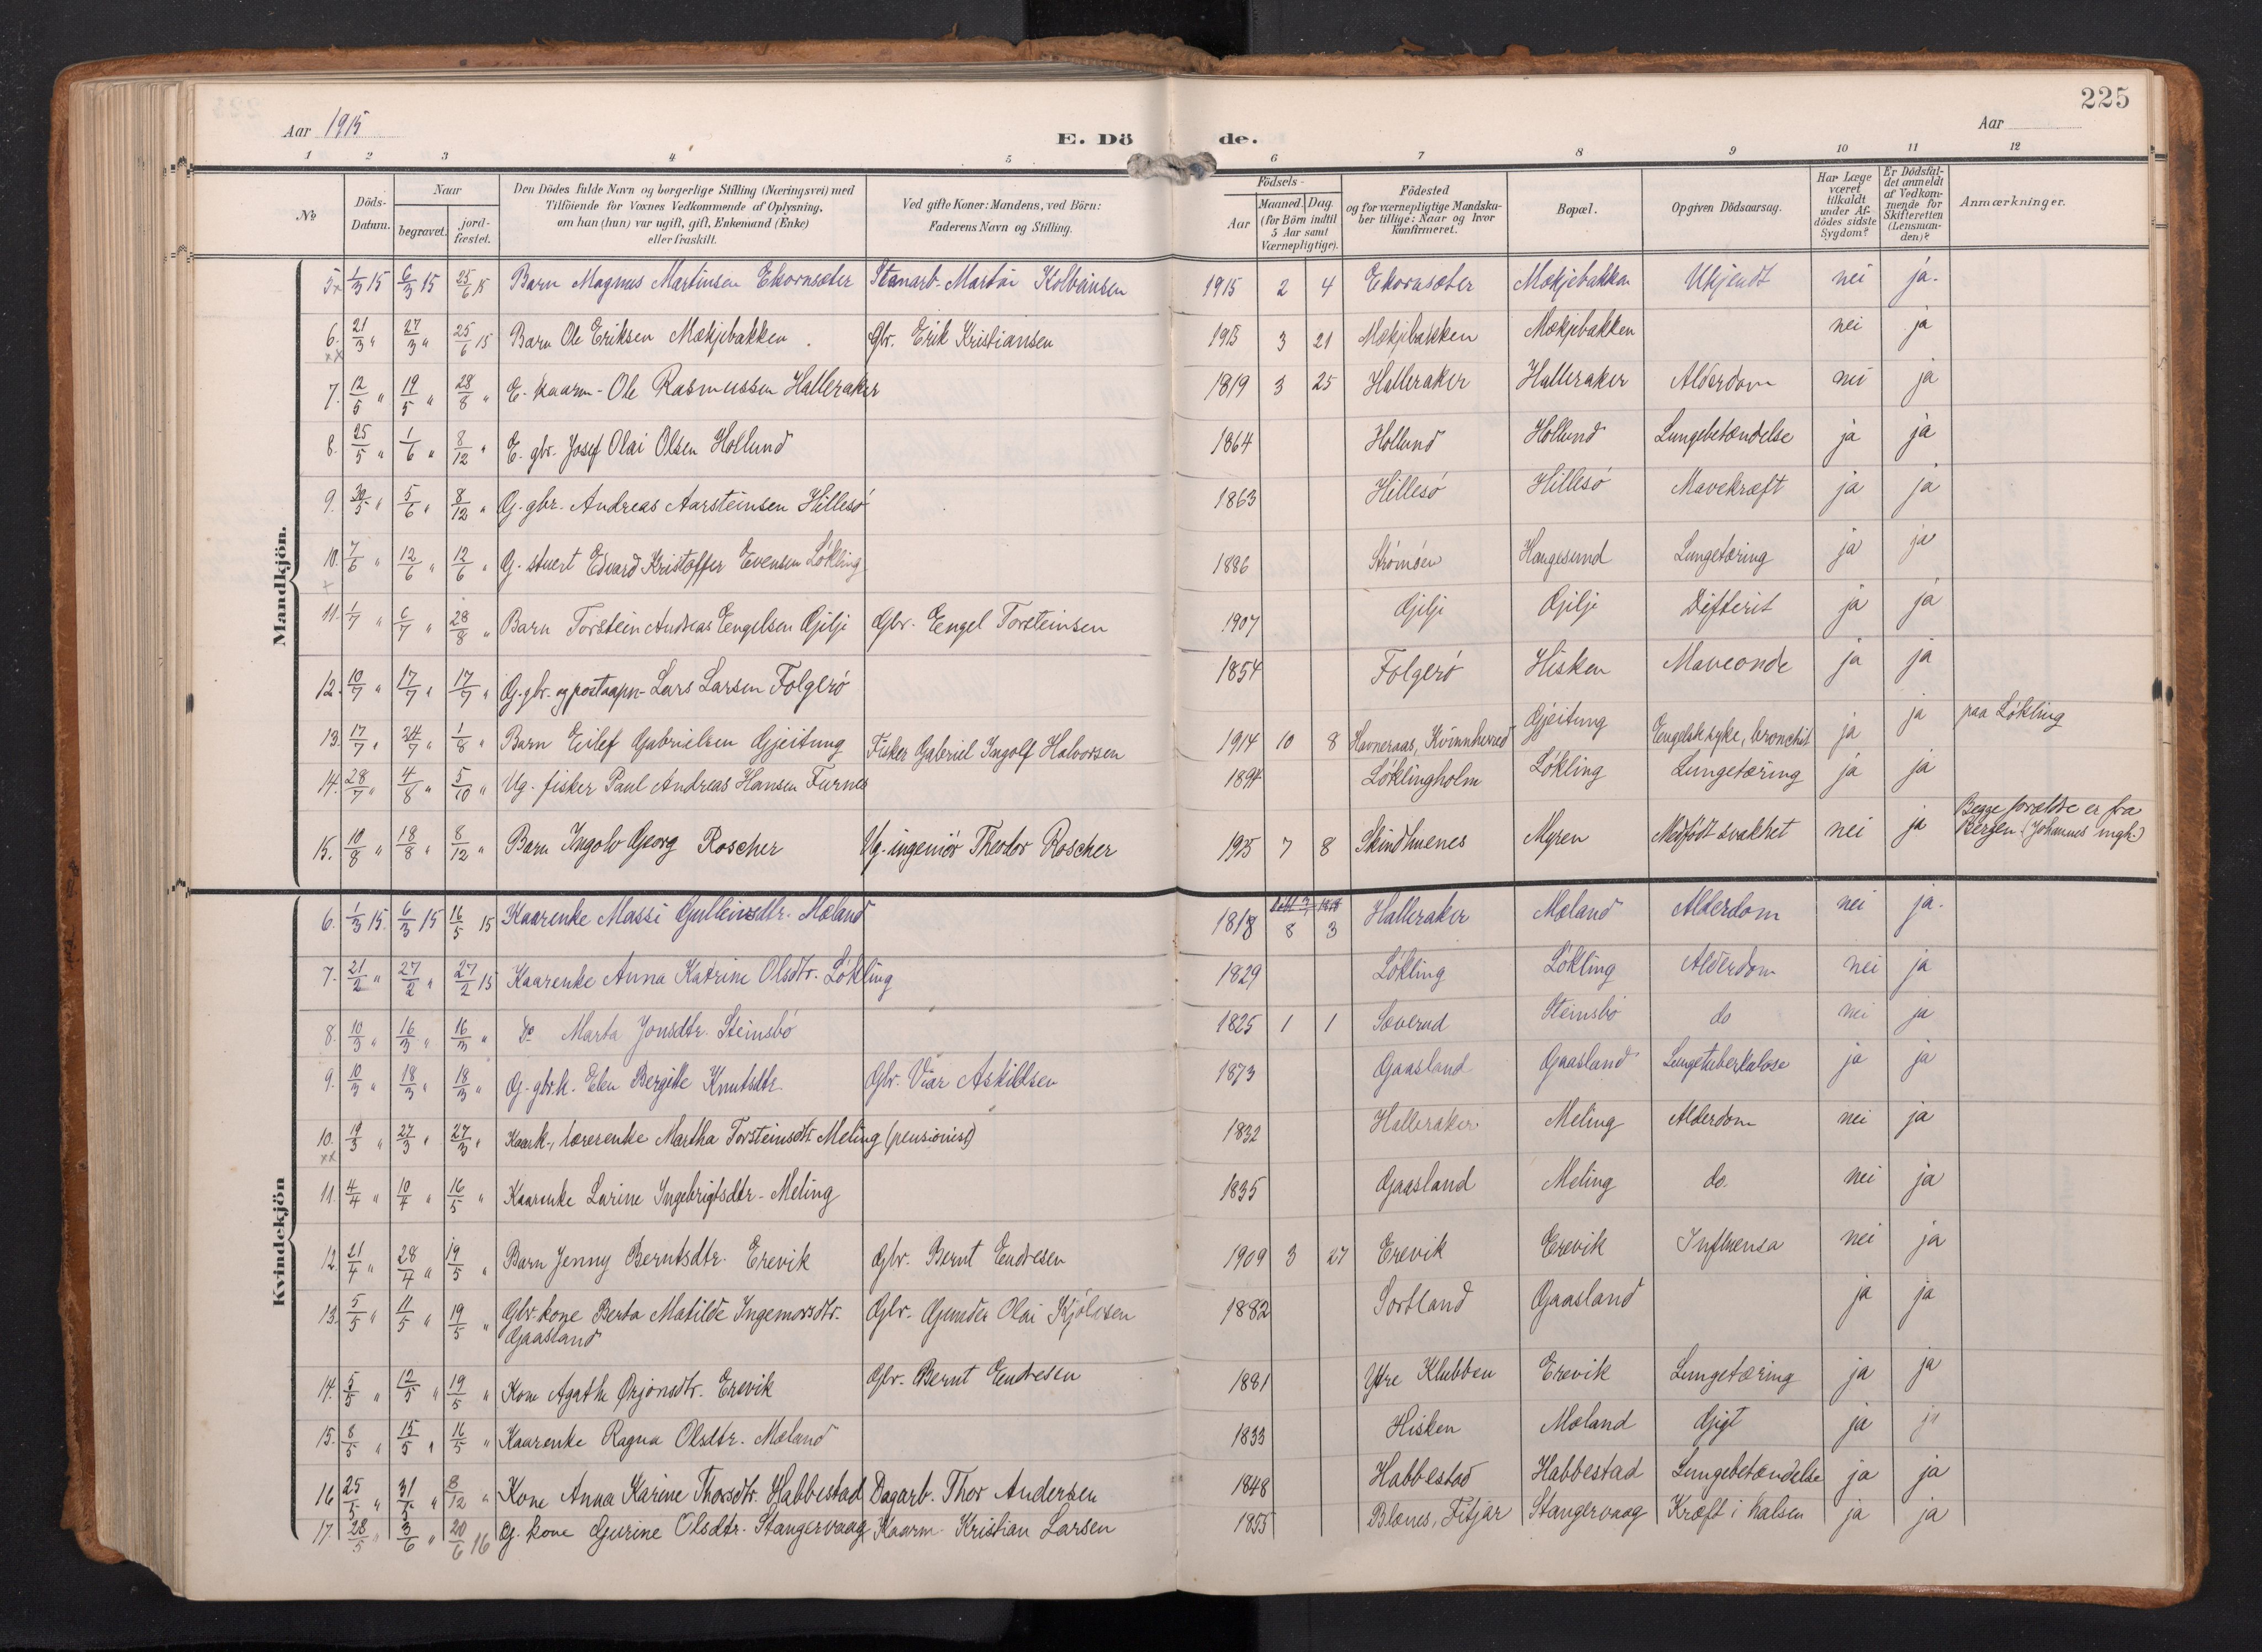 225
Aar 1915
E. Dö de.
Aar
1 2 3 4 5 6 7 8 9 10 11 12
№
Döds-Datum.
Naar
begravet.
jord-fæstet.
Den Dödes fulde Navn og borgerlige Stilling (Næringsvei) med
Tilföiende for Voxnes Vedkommende af Oplysning,
om han (hun) var ugift, gift, Enkemand (Enke)
eller fraskilt.
Ved gifte Koner: Mandens, ved Börn:
Faderens Navn og Stilling.
Födsels-
Aar
Maaned. Dag.
(for Börn indtil
5 Aar samt
Værnepligtige).
Födested
og for værnepligtige Mandska-
ber tillige: Naar og hvor
Konfirmeret.
Bopæl.
Opgiven Dödsaarsag.
Har Læge
været
tilkaldt
under Af-
dödes sidste
Sygdom?
Er Dödsfal-
det anmeldt
af Vedkom-
mende for
Skifteretten
(Lensman-
den)?
Anmærkninger.
Mandkjön.
5. 1/3 15 6/3 15 25/6 15 Barn Magnus Martinsen Ekornsæter Martin Kolbeinsen 1915 2 4 Ekornsæter Mækjebakken Ukjendt nei ja.
6. 21/3 " 27/3 " 25/6 15 Barn Ole Eriksen Mækjebakken. Gbr. Erik Kristiansen 1915 3 21 Mækjebakken Mækjebakken nei ja
7. 12/5 " 19/5 " 28/8 " E. kaarm- Ole Rasmussen Halleraker 1819 3 25 Halleraker Halleraker Alderdom nei ja
8. 25/5 " 1/6 " 8/12 " E. gbr. Josef Olai Olsen Hollund 1864 Hollund Hollund Lungebetændelse ja ja
9. 30/5 " 5/6 " 8/12 " G. gbr. Andreas Aarsteinsen Hillesö 1863 Hillesö Hillesö Mavekræft ja ja
10. 7/6 " 12/6 " 12/6 " G. stuert Edvard Kristoffer Evensen Lökling 1886 Strömöen Haugesund Lungetæring ja ja
11. 1/7 " 6/7 " 28/8 " Barn Torstein Andreas Engelsen Gilje Gbr. Engel Torsteinsen 1907 Gilje Gilje Difterit ja ja
12. 10/7 " 17/7 " 17/7 " G. gbr. og postaapn- Lars Larsen Folgerö 1854 Folgerö Hisken Maveonde ja ja
13. 17/7 " 24/7 " 1/8 " Barn Eilef Gabrielsen Gjeitung Fisker Gabriel Ingolf Halvorsen 1914 10 8 Havneraas, Kvinnherred Gjeitung Engelsk syke, bronchit ja ja paa Lökling
14. 28/7 " 4/8 " 5/10 " Ug. fisker Paul Andreas Hansen Furnes 1894 Löklingholm Lökling Lungetæring ja ja
15. 10/8 " 18/8 " 8/12 " Barn Ingolv Georg Roscher Ug. ingeniör Theodor Roscher 1915 7 8 Skindhuenes Myren Medfödt svakhet nei ja Begge forældre er fra
Bergen (Johannes mgh.)
Kvindekjön
6. 1/3 15. 6/3 15 16/5 15 Kaarenke Massi Gulleiksdtr. Mæland 1818 8 3 Halleraker Mæland Alderdom nei ja.
7. 21/2 " 27/2 " 27/2 15 Kaarenke Anna Katrine Olsdtr. Lökling 1829 Lökling Lökling Alderdom nei ja
8. 10/3 " 16/3 " 16/3 " Do Marta Jonsdtr. Steinsbö 1825 1 1 Sæverud Steinsbö do nei ja
9. 10/3 " 18/3 " 18/3 " G. gbr.k. Elen Bergitte Knutsdtr. Gbr. Viar Askildsen 1873 Gaasland Gaasland Lungetuberkulose ja ja
10. 19/3 " 27/3 " 27/3 " Kaark-, lærerenke Martha Torsteinsdtr. Meling (pensionist) 1832 Halleraker Meling Alderdom nei ja
11. 4/4 " 10/4 " 16/5 " Kaarenke Larine Ingebrigtsdtr- Meling 1835 Gaasland Meling do. nei ja
12. 21/4 " 28/4 " 19/5 " Barn Jenny Berntsdtr. Erevik Gbr. Bernt Endresen 1909 3 27 Erevik Erevik Influensa nei ja
13. 5/5 " 11/5 " 19/5 " Gbr-kone Berta Matilde Ingemorsdtr. Gbr. Gunder Olai 1882 Sortland Gaasland ja ja
Gaasland
14. 5/5 " 12/5 " 19/5 " Kone Agathe Ørjansdtr. Erevik Gbr. Bernt Endresen 1881 Ytre Klubben Erevik Lungetæring ja ja
15. 8/5 " 15/5 " 16/5 " Kaarenke Ragna Olsdtr. Mæland 1833 Hisken Mæland Gigt ja ja
16 25/5 " 31/5 " 8/12 " Kone Anna Karine Thorsdtr. Habbestad Dagarb. Thor Andersen 1848 Habbestad Habbestad Lungebetændelse ja ja
17. 28/5 " 3/6 " 20/6 16 G. kone Gurine Olsdtr. Stangervaag Kaarm. Kristian Larsen 1855 Blænes, Fitjar Stangervaag Kræft i halsen ja ja